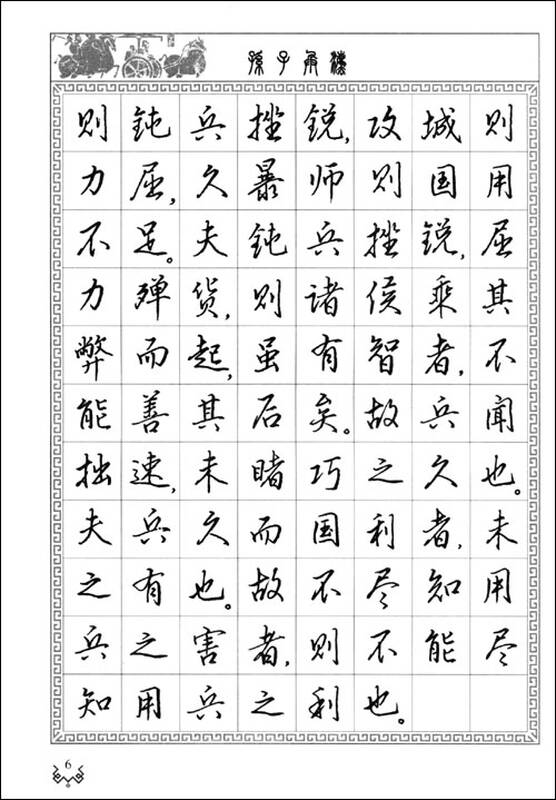 孫子兵法
则钝兵挫锐,攻城则
力屈,久暴师则国用
不足。夫钝兵挫锐,屈
力殚货,则诸侯乘其
弊而起,虽有智者,不
能善其后矣。故兵闻
拙速,未睹巧之久也。
夫兵久而国利者,未
之有也。故不尽知用
兵之害者,则不能尽
知用兵之利也。
6